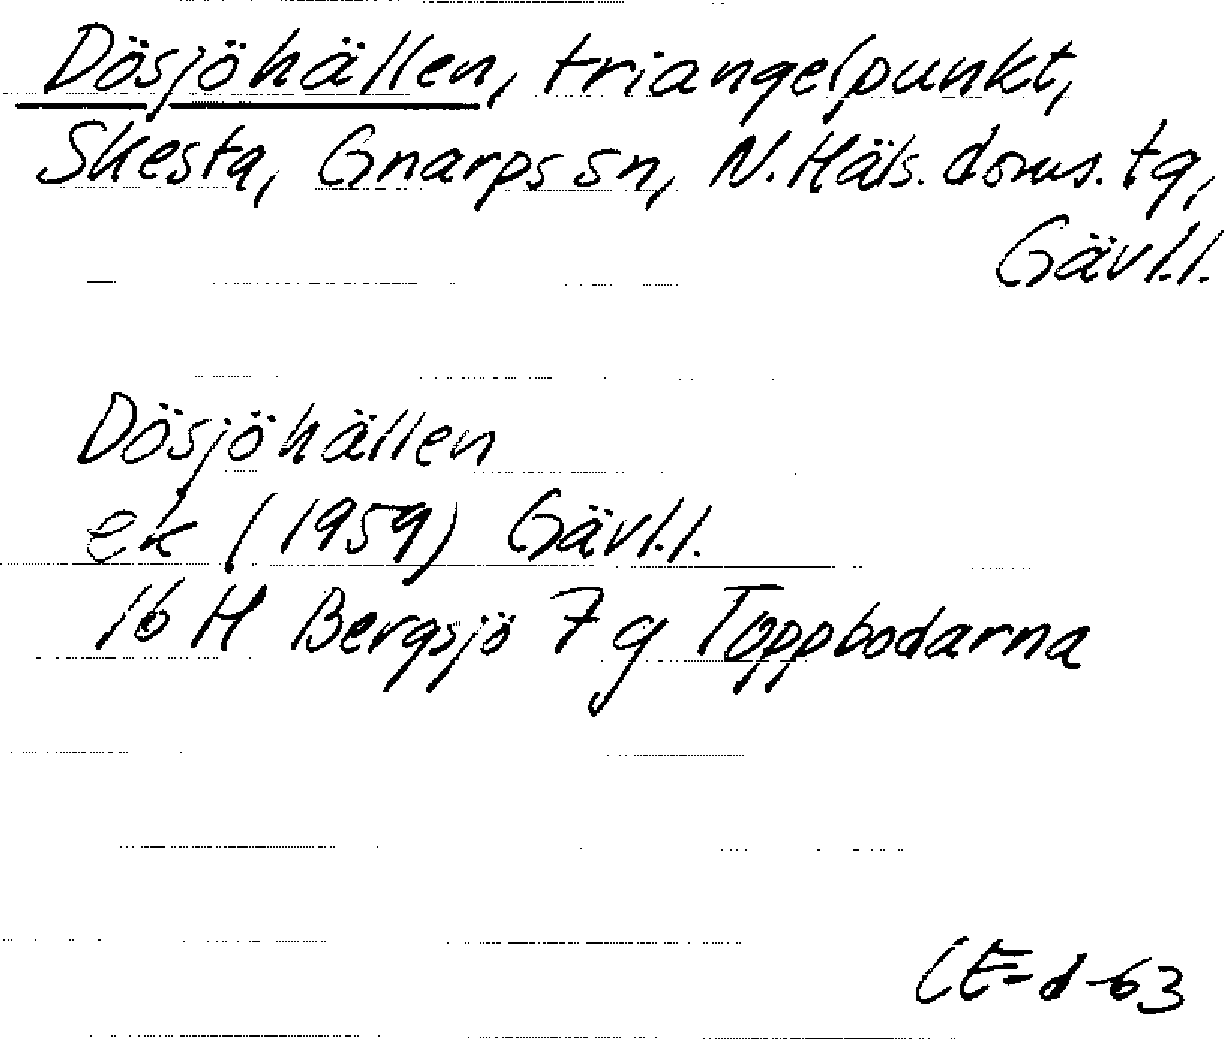 Dösjöhällen, triangelpunkt,
Skesta, Gnarps sn, N. Häls. doms. tg,
Gävl.l.
Dösjöhällen
ek (1959) Gävl.l.
16 H Bergsjö 7 g Toppbodarna
CE-d -63